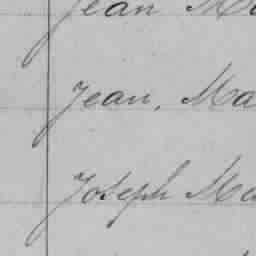 Jean Ma
Jean, Ma
Joseph Ma